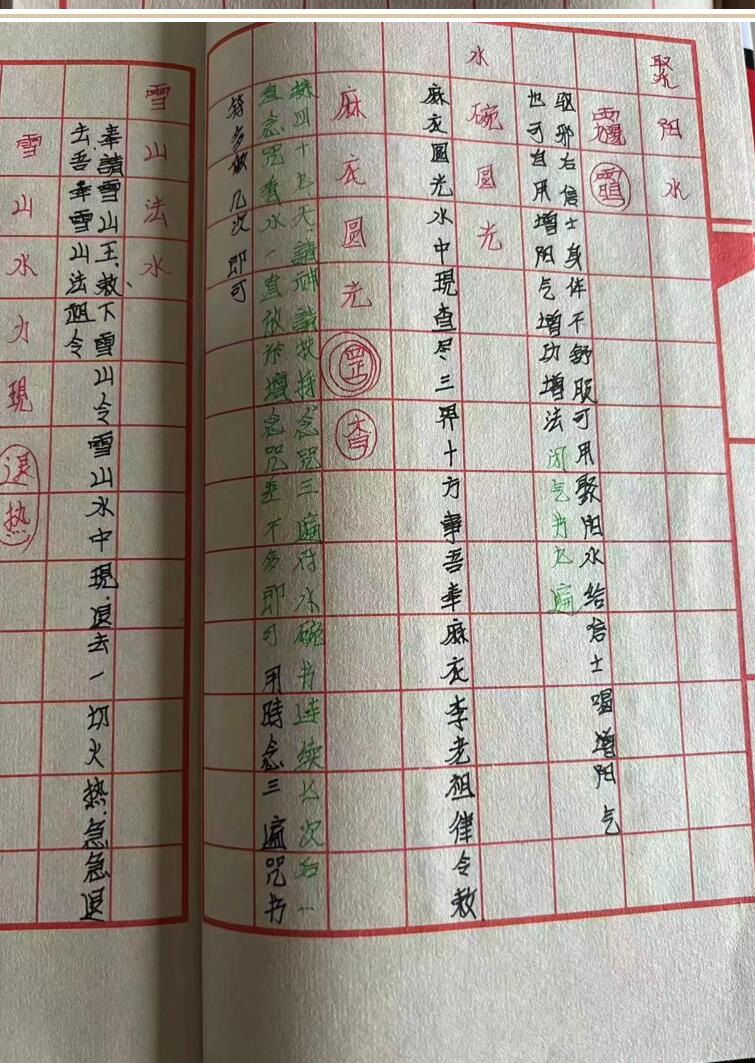 聚阳水
驱邪右信士身体不舒服可用聚阳水给信士喝增阳气
也可自用增阳气增功增法闭气书七遍
水碗圆光
麻衣圆光水中現查尽三界十方事吾奉麻衣李老祖律令敕
麻衣圓光
接四十七天請神議扶持念咒三遍对水碗书連续七次后一
直念咒看水一直放作壇念咒差不多即可用時念三遍咒书
符多做几次即可
雪山法水
奉請雪山王敕下雪山令雪山水中現退去一切火热急急退
去吾奉雪山法祖令
雪山水力現退热